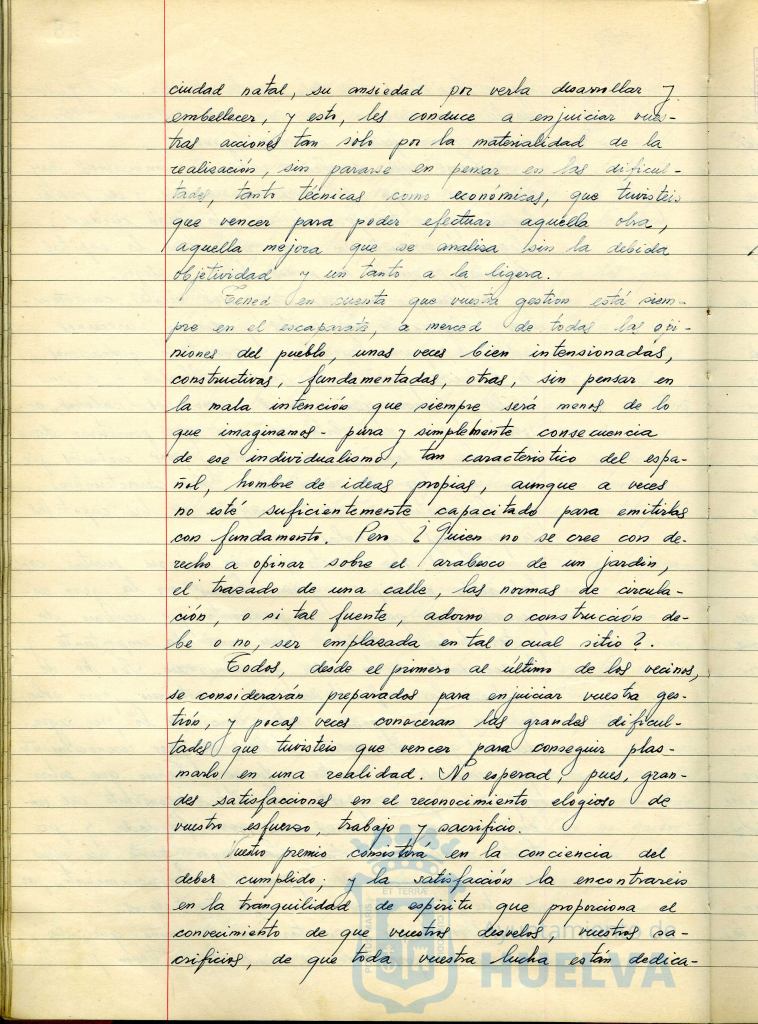 ciudad natal, su ansiedad por verla desarrollar y
embellecer, y esto, les conduce a enjuiciar vues-
tras acciones tan sólo por la materialidad de la
realización, sin pararse en pensar en las dificul-
tades, tanto técnicas como económicas, que tuvisteis
que vencer para poder efectuar aquella obra,
aquella mejora que se analisa sin la debida
objetividad y un tanto a la ligera.
Tened en cuenta que vuestra gestión está siem-
pre en el escaparate, a merced de todas las opi-
niones del pueblo, unas veces bien intensionadas,
constructivas, fundamentadas, otras, sin pensar en
la mala intención que siempre será menos de lo
que imaginamos - pura y simplemente consecuencia
de ese individualismo, tan caracteristico del espa-
ñol, hombre de ideas propias, aunque a veces
no esté suficientemente capacitado para emitirlas
con fundamento. Pero ¿Quien no se cree con de-
recho a opinar sobre el arabesco de un jardin,
el trazado de una calle, las normas de circula-
ción, o si tal fuente, adorno o construcción de-
be o no, ser emplazada en tal o cual sitio?.
Todos, desde el primero al último de los vecinos,
se considerarán preparados para enjuiciar vuestra ges-
tión, y pocas veces conoceran las grandes dificul-
tades que tuvisteis que vencer para conseguir plas-
marlo en una realidad. No esperad, pues, gran-
des satisfacciones en el reconocimiento elogioso de
vuestro esfuerzo, trabajo y sacrificio.
Vuestro premio consistirá en la conciencia del
deber cumplido; y la satisfacción la encontrareis
en la tranquilidad de espiritu que proporciona el
convecimiento de que vuestros desvelos, vuestros sa-
crificios, de que toda vuestra lucha están dedica-
ET TERRÆ
HUELVA